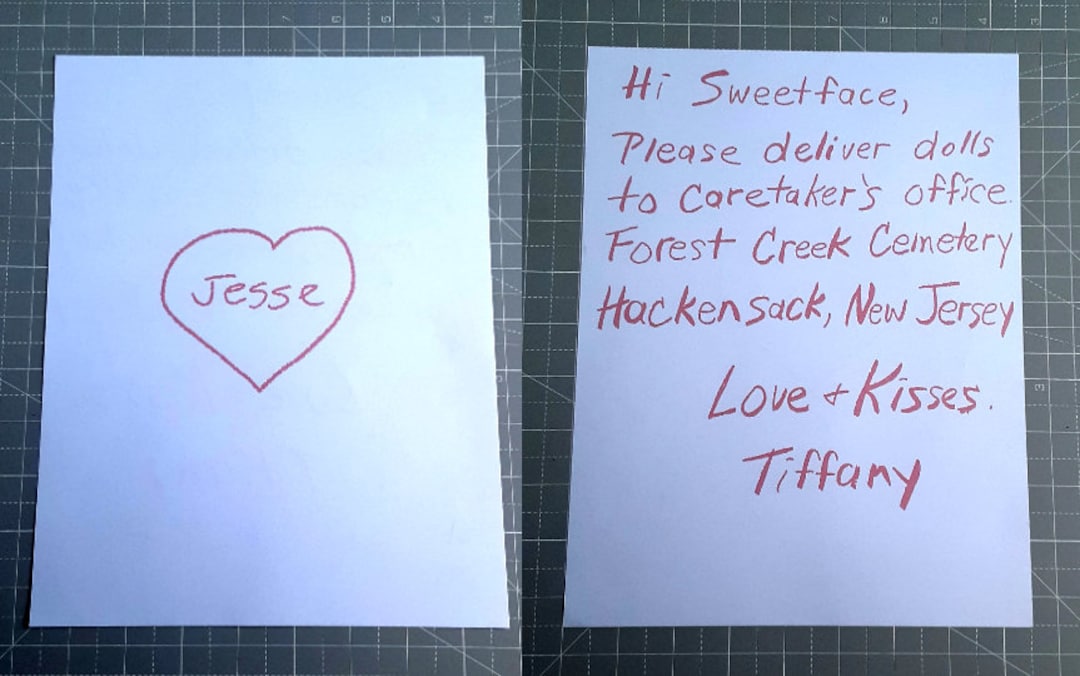 Jesse
Hi Sweetface,
Please deliver dolls
to Caretaker's office.
Forest Creek Cemetery
Hackensack, New Jersey
Love + Kisses.
Tiffany